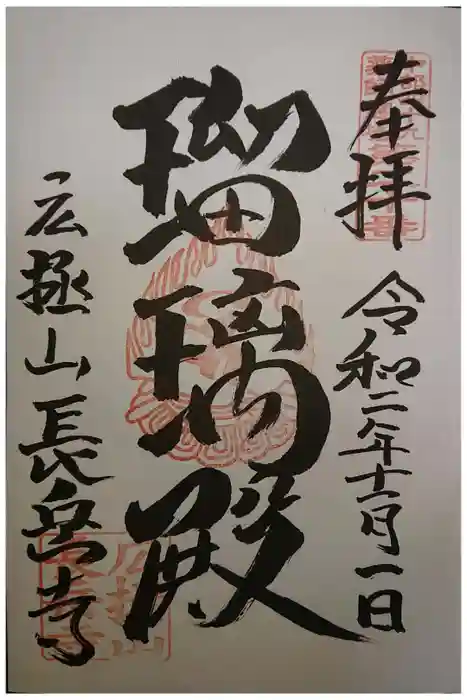 奉拝
令和二年十一月一日
瑠璃殿
広極山長岳寺